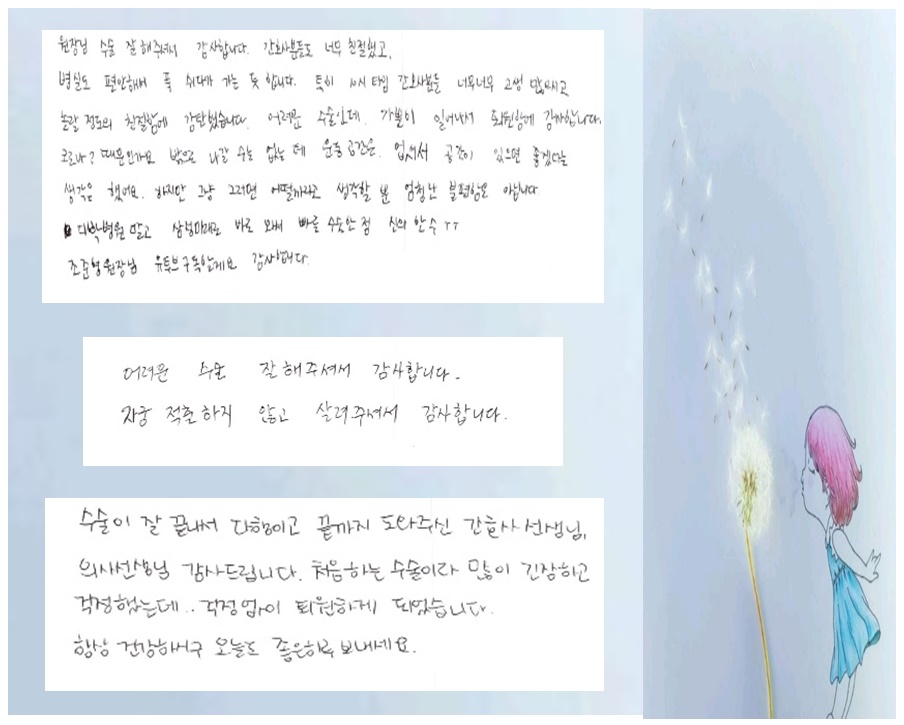 원장님 수술 잘 해주셔서 감사합니다. 간호사분들도 너무 친절했고,
병실도 편안해서 푹 쉬다가 가는 듯 합니다. 특히 새벽 타임 간호사분들 너무너무 고생 많으시고
놀랄 정도의 친절함에 감탄했습니다. 어려운 수술인데, 가뿐이 일어나서 퇴원함에 감사합니다.
코로나? 때문인가요 밖으로 나갈 수는 없는데 운동공간은 없어서 공간이 있으면 좋겠다는
생각은 했어요. 하지만 그냥 그러면 어떨까라고 생각할 뿐 엄청난 불편함은 아닙니다
대학병원 말고 삼성미래로 바로 와서 빠른 수술한 점 신의 한 수 ㅜㅜ
조준형원장님 유튜브 구독할게요 감사합니다.
어려운 수술 잘 해주셔서 감사합니다.
자궁 적출하지 않고 살려주셔서 감사합니다.
수술이 잘 끝나서 다행이고 끝까지 도와주신 간호사 선생님,
의사선생님 감사드립니다. 처음하는 수술이라 많이 긴장하고
걱정했는데.. 걱정없이 퇴원하게 되었습니다.
항상 건강하시구 오늘도 좋은하루 보내세요.